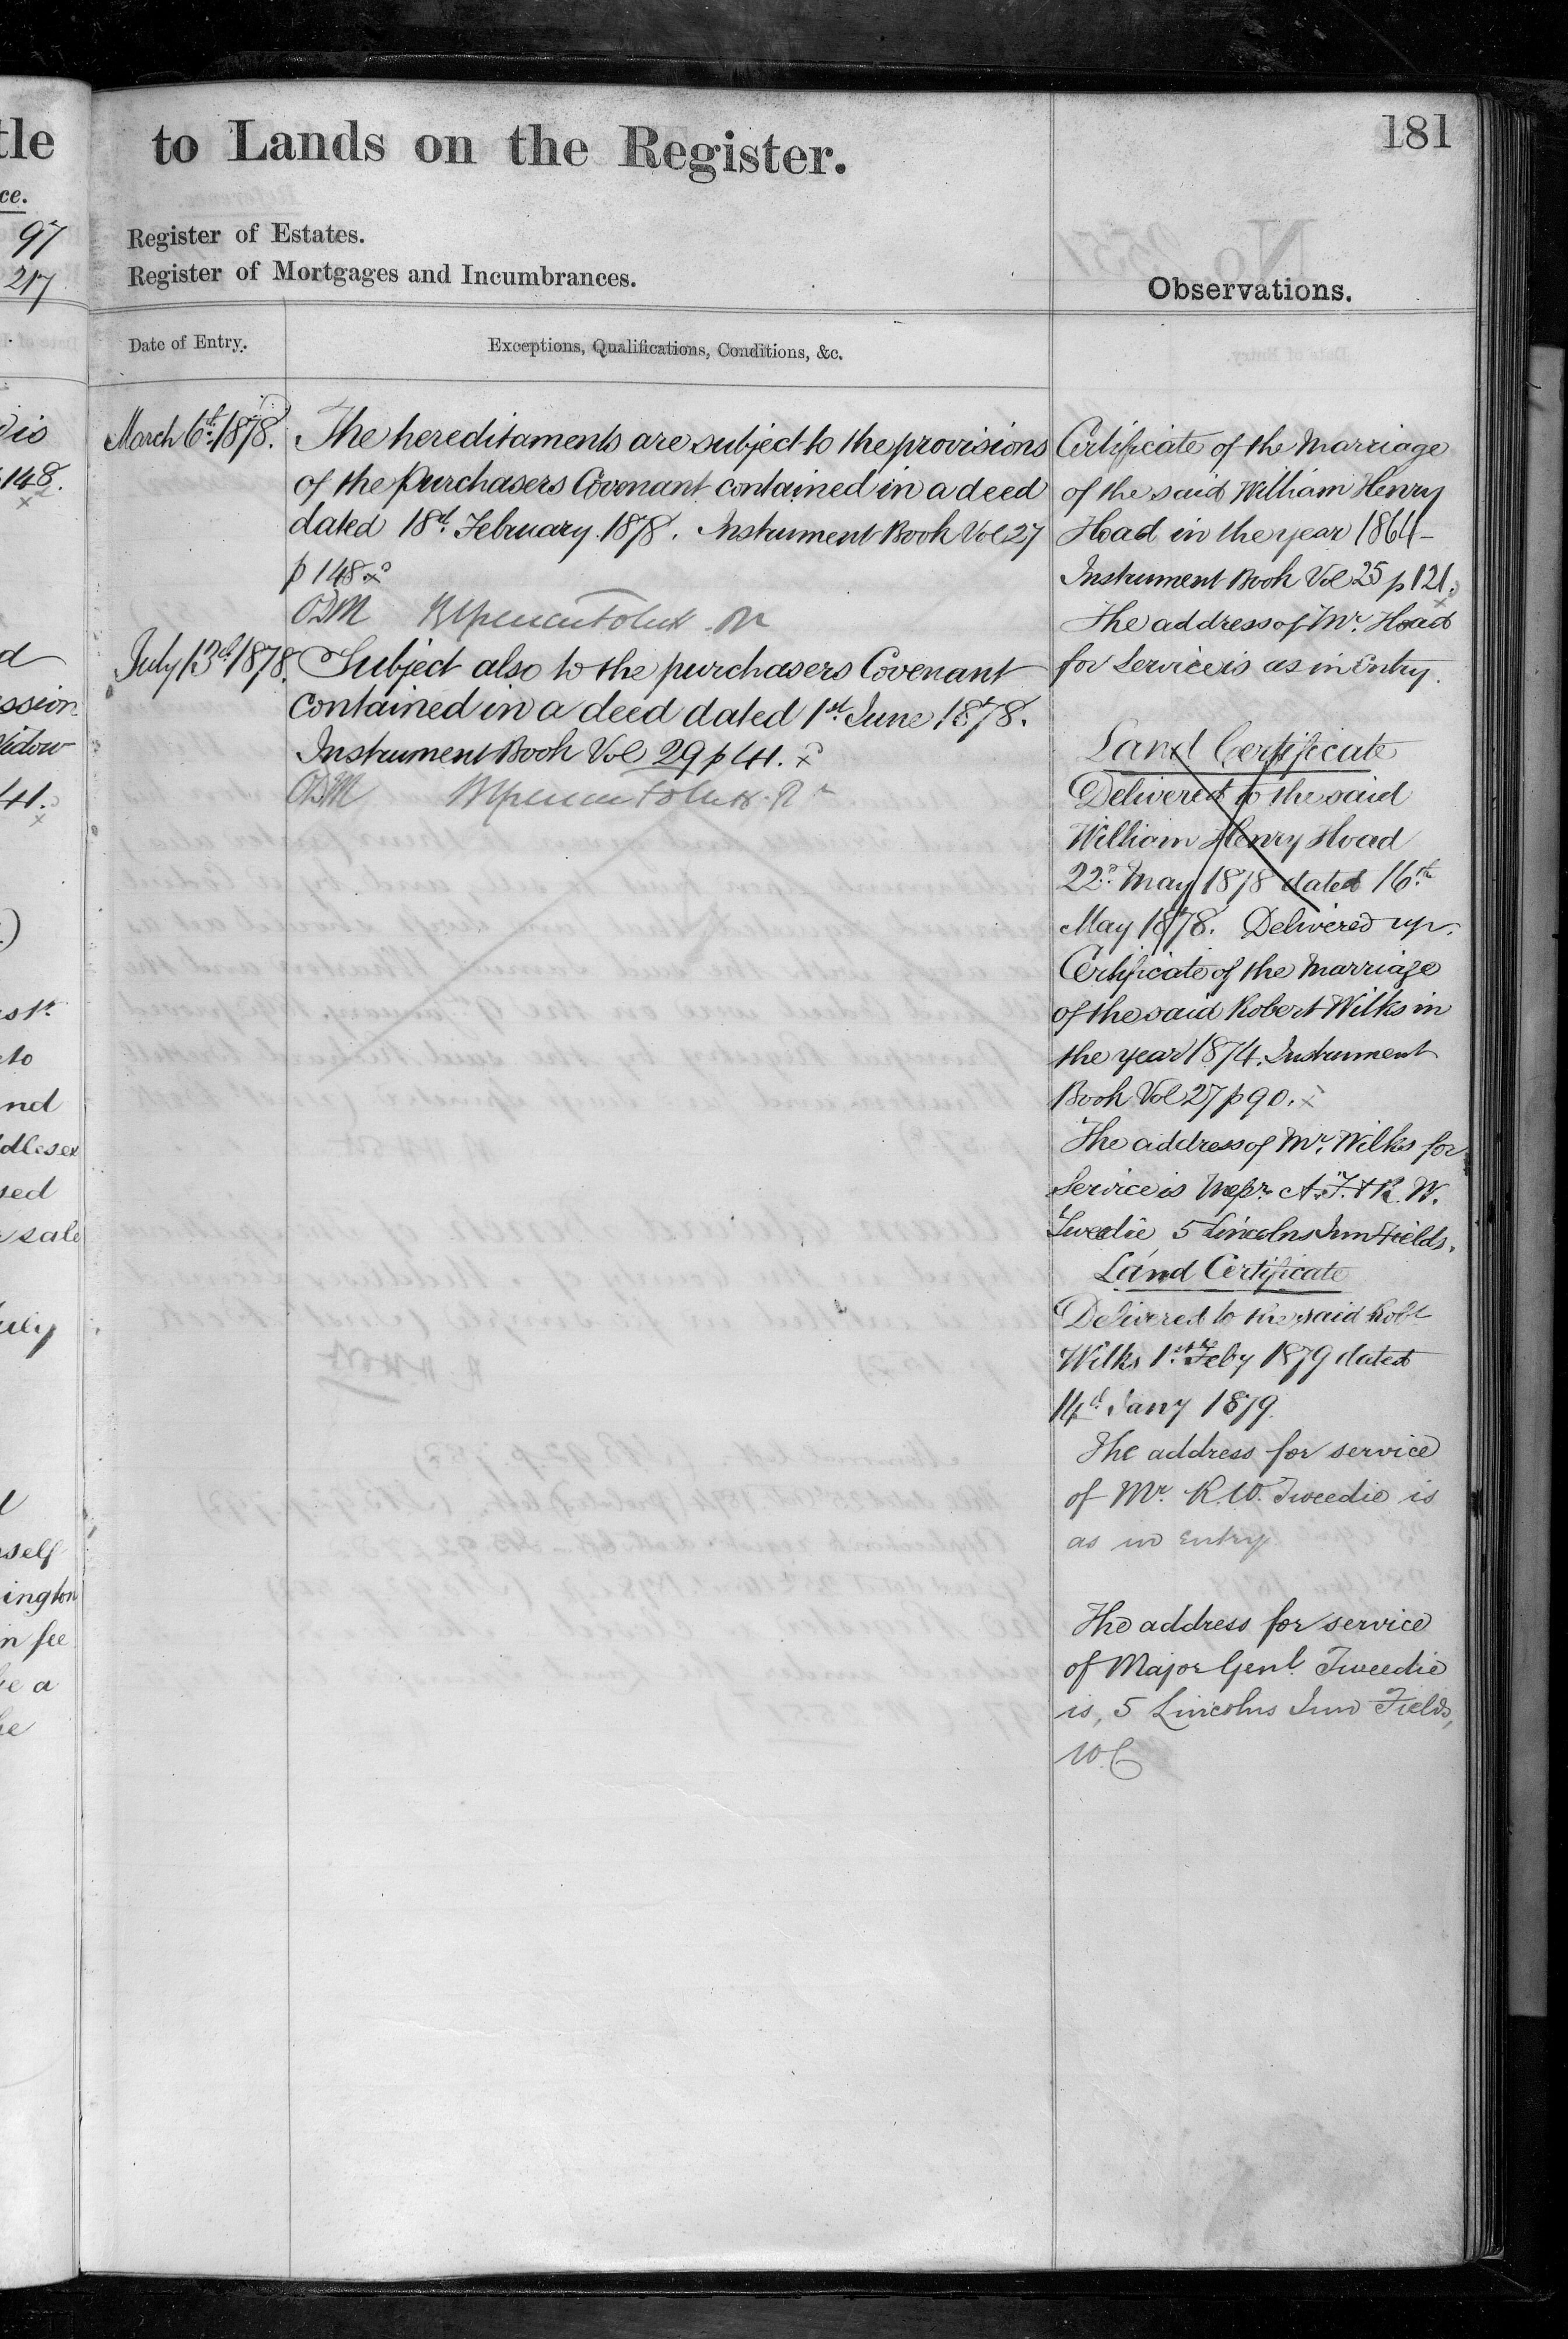 tle
ce.
97
217
dis
148.
d
ssion
idow
41.
to
nd
dlesex
sed
sale
uly
self
ington
in fee
be a
he
to Lands on the Register.
181
Register of Estates.
Register of Mortgages and Incumbrances.
Observations.
Date of Entry.
Exceptions, Qualifications, Conditions, &c.
March 6th 1878.
The hereditaments are subject to the provisions
of the purchasers Covenant contained in a deed
dated 18th February 1878. Instrument Book Vol 27
p 148.
ODM
July 13th 1878.
Subject also to the purchasers Covenant
contained in a deed dated 1st June 1878.
Instrument Book Vol 29 p 41.
ODM
Certificate of the Marriage
of the said William Henry
Hoad in the year 1864
Instrument Book Vol 25 p 121.
The address of Mr. Hoad
for Service is as in Entry.
Land Certificate
Delivered to the said
William Henry Hoad
22nd May 1878 dated 16th
May 1878. Delivered up.
Certificate of the Marriage
of the said Robert Wilks in
the year 1874. Instrument
Book Vol 27 p 90.
The address of Mr. Wilks for
Service is Messrs A. F. & R. W.
Tweedie, 5 Lincolns Inn Fields.
Land Certificate
Delivered to the said Robt
Wilks 1st Feby 1879 dated
14th Jany 1879.
The address for service
of Mr. R. W. Tweedie is
as in Entry.
The address for service
of Major Genl. Tweedie
is, 5 Lincolns Inn Fields,
W.C